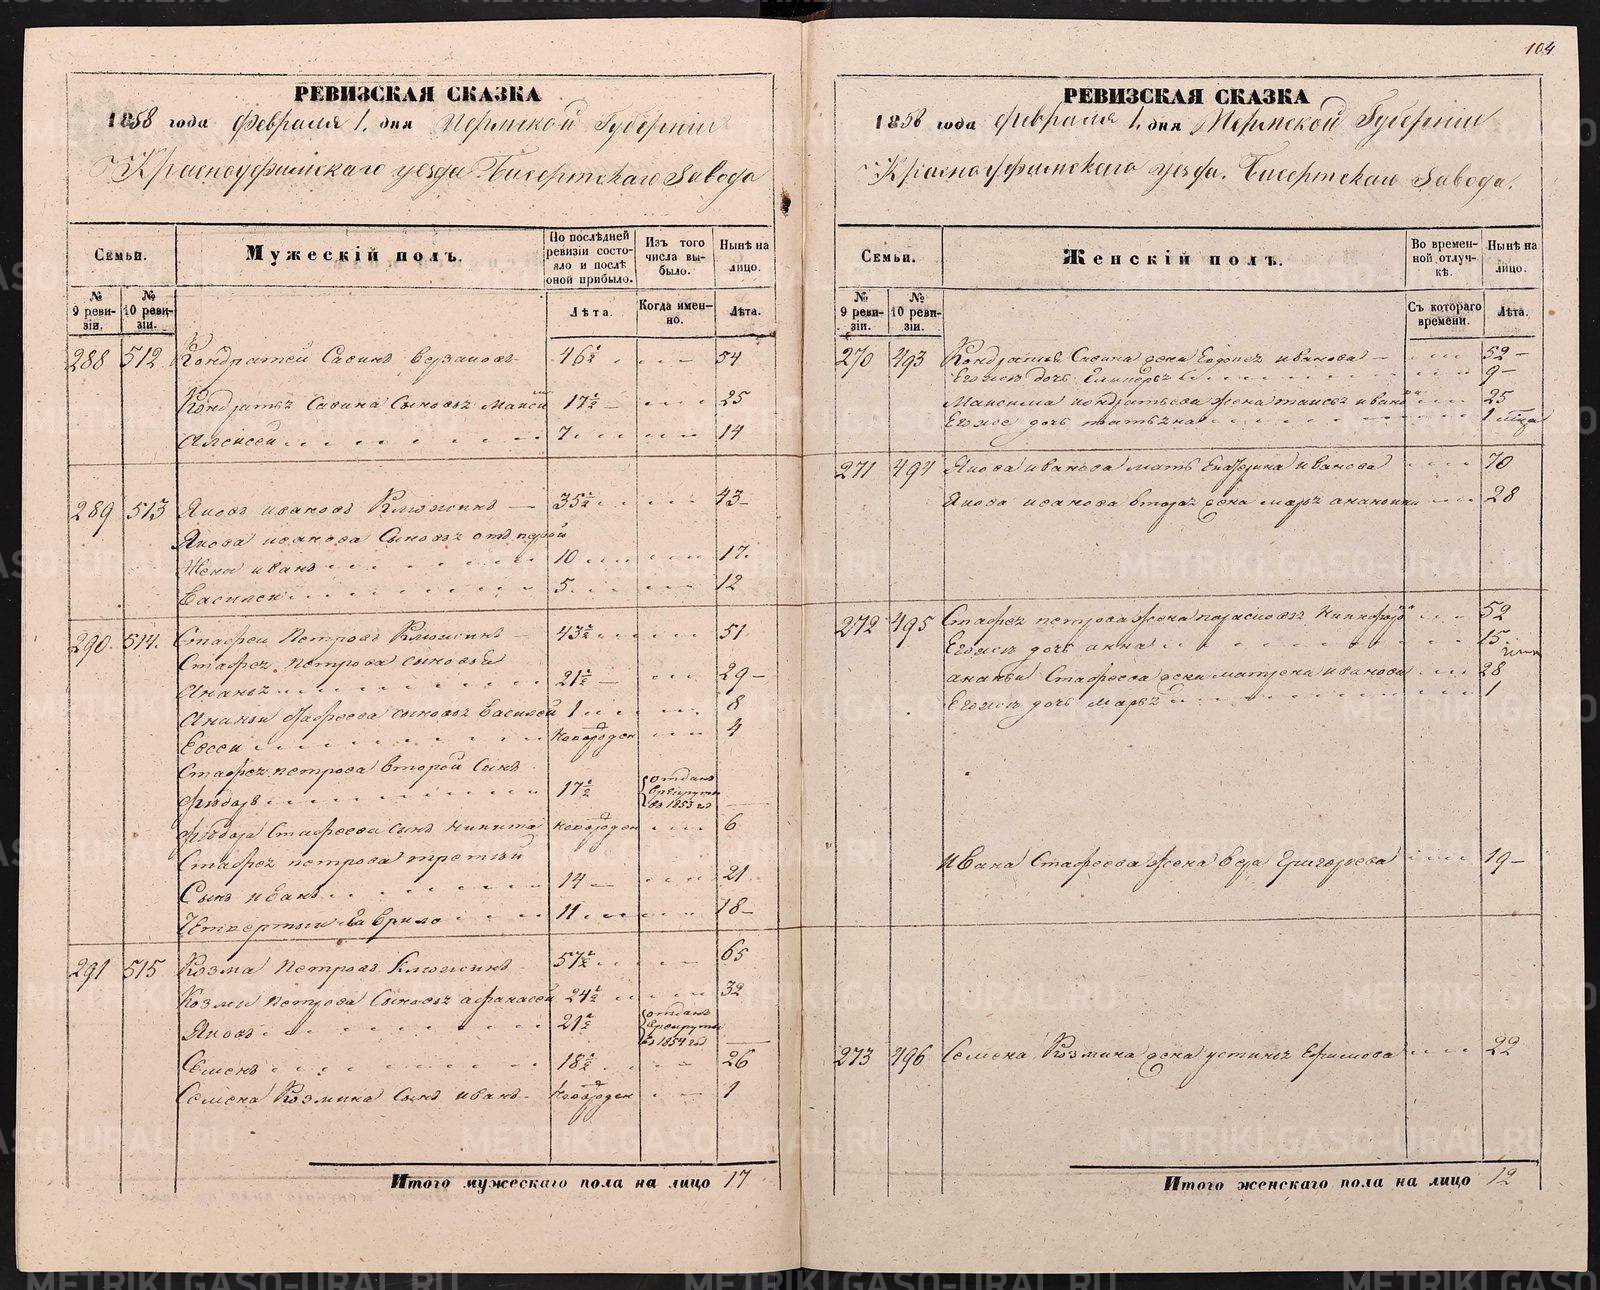 104
РЕВИЗСКАЯ СКАЗКА
1858 года Февраля 1. дня Пермской Губернии
Красноуфимскаго уезда Бисертскаго Завода
Семьи.
Мужескій полъ.
По послѣдней ревизіи состояло и послѣ оной прибыло.
Изъ того числа выбыло.
Нынѣ на лицо.
№ 9 ревизіи.
№ 10 ревизіи.
Лѣта.
Когда именно.
Лѣта.
288 512 Кондратей Савинъ 46½ 54
Кондратья Савина Сыновья Максим 17½ 25
Алексей 7 14
289 513 Яковъ Ивановъ Клюжинъ 35½ 43
Якова Иванова Сыновья от первой
Жены Иванъ 10 17
Василей 5 12
290 514 Стафей Петровъ Клюжинъ 43½ 51
Стафея Петрова Сыновья
Ананья 21½ 29
Ананьи Стафеева сыновья Василей 1 8
Евсей новорожден 4
Стафея Петрова второй Сынъ
Фёдоръ 17½ отданъ в рекруты в 1853 го
Фёдора Стафеева сынъ Никита новорожден 6
Стафея Петрова третий
Сынъ Иванъ 14 21
Четвертый Гаврило 11 18
291 515 Козма Петровъ Клюжинъ 57½ 65
Козмы Петрова Сыновья Афанасей 24½ 32
Яковъ 21½ отданъ в рекруты в 1854 го
Семенъ 18½ 26
Семена Козмина Сынъ Иванъ новорожден 1
Итого мужескаго пола на лицо 17
РЕВИЗСКАЯ СКАЗКА
1858 года Февраля 1. дня Пермской Губернии
Красноуфимскаго уезда. Бисертскаго Завода.
Семьи.
Женскій полъ.
Во временной отлучкѣ.
Нынѣ на лицо.
№ 9 ревизіи.
№ 10 ревизіи.
Съ котораго времени.
Лѣта.
270 493 Кондратья Савина жена Иванова 52
Ево же дочь 9
Максима Кондратьева жена Таисья Иванова 25
Ево же дочь Татьяна 1
271 494 Якова Иванова мать Екатерина Иванова 70
Якова Иванова вторая жена Марья Ананьина 28
272 495 Стафея Петрова жена Парасковья 52
Ево же дочь Анна 15
Ананьи Стафеева жена Матрена Иванова 28
Ево же дочь Марья 1
Ивана Стафеева жена Вера Григорьева 19
273 496 Семена Козмина жена Устинья Ефимова 22
Итого женскаго пола на лицо 12
METRIKI.GASO-URAL.RU